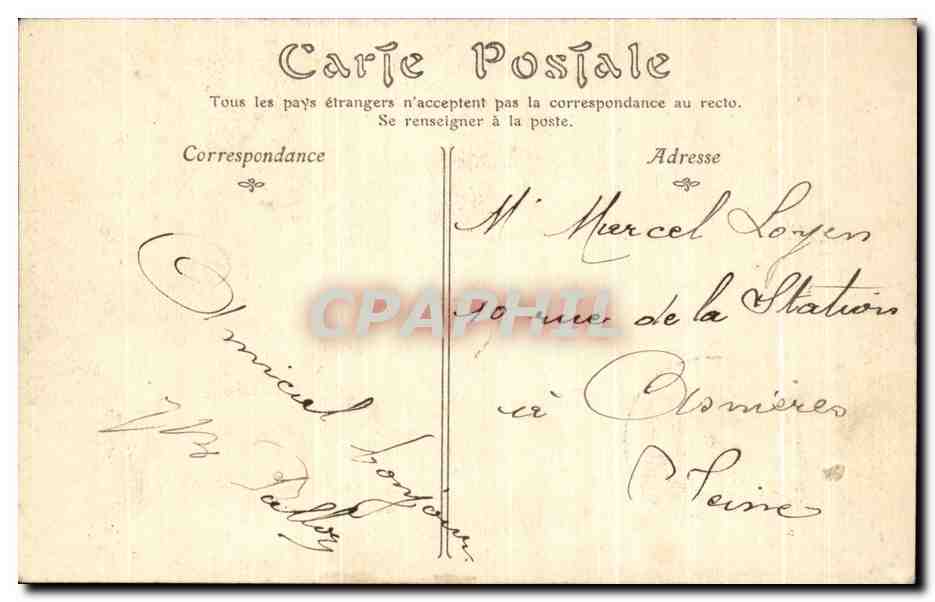 Carte Postale
Tous les pays étrangers n'acceptent pas la correspondance au recto.
Se renseigner à la poste.
Correspondance
Amical bonjour
Adresse
Mr Marcel Loyen
10 rue de la Station
à Asnières
Seine
CPAPHIL